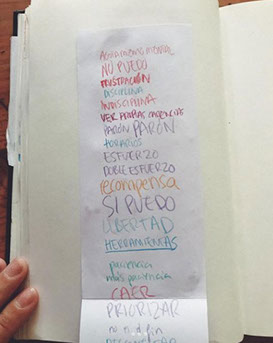 NO PUEDO
FRUSTRACIÓN
DISCIPLINA
INDISCIPLINA
VER PROPIAS CARENCIAS
PARÓN PARÓN
HORARIOS
ESFUERZO
DOBLE ESFUERZO
recompensa
SI PUEDO
LIBERTAD
HERRAMIENTAS
paciencia
más paciencia
CAER
PRIORIZAR